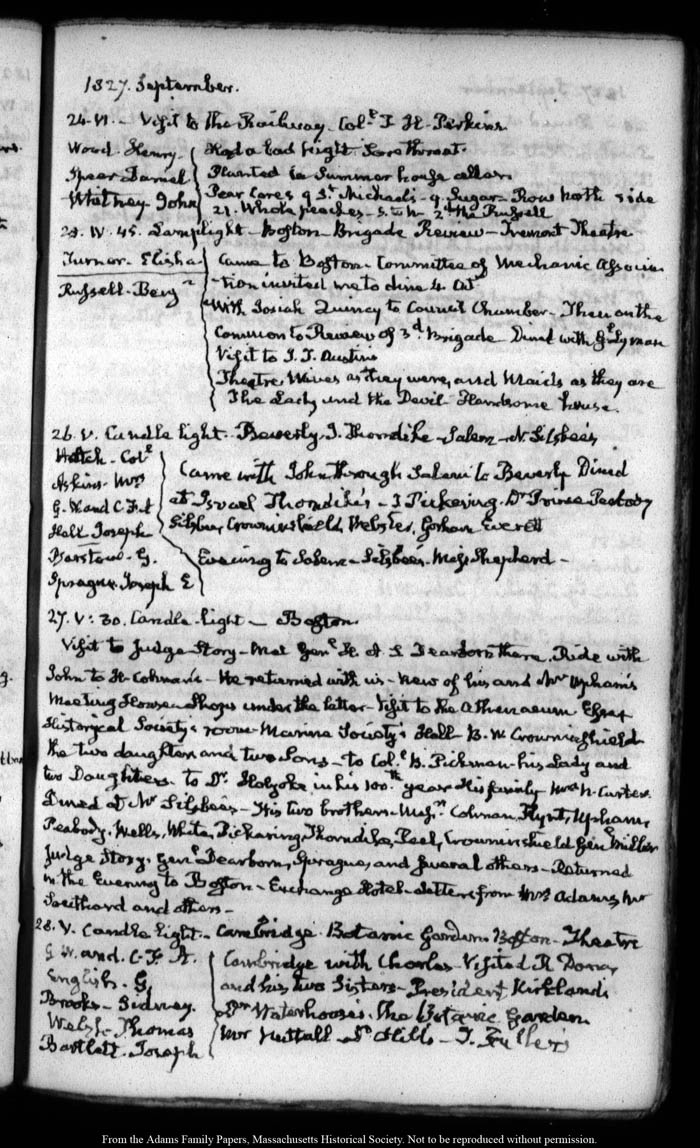 1827. September.
24. VI. - Visit to the Railway. Col.l T. H. Perkins.
Wood. Henry. Had a bad night. Sore throat.
Spear Daniel Planted in Summer house alley
Whitney John Pear Cores 9 St. Michael's - 9 Sugar - Row North side
21. Whole peaches - S. to N 2d
25. IV. 45. Lamplight - Boston - Brigade Review - Tremont Theatre
Turner. Elisha Came to Boston. Committee of Mechanic Associa-
Russell. Benjn tion invited me to dine 4. Oct.
With Josiah Quincy to Council Chamber - Then on the
Common to Review of 3d. Brigade Dined with Gl. Lyman
Visit to J. T. Austin's
Theatre. Wives as they were, and Maids as they are
The Lady and the Devil. Handsome house.
26. V. Candle light. Beverly. I. Thorndike - Salem - N. Silsbee's
Hatch. Col.l
Askins. Mrs Came with John through Salem to Beverly Dined
G. W. and C. F. A at Israel Thorndike's - T Pickering. Dr Prince Peabody
Hall Joseph Silsbee, Crowninshield, Webster, Gorham Everett
Barstow. G. Evening to Salem - Silsbee's. Miss Shepherd -
Sprague. Joseph E
27. V: 30. Candle light - Boston.
Visit to Judge Story - Met Genl. H. A. S. Dearborn there. Ride with
John to H. Colman's - He returned with us - New of his and Mr Upham's
Meeting Houses. Shops under the latter - Visit to the Athenaeum Essex
Historical Society's room - Marine Society's Hall - B. W. Crowninshield
the two daughters and two Sons - to Col.l B. Pickman his Lady and
two Daughters. to Dr. Holyoke in his 100.th year His family Mrs N. Curtex.
Dined at Mr Silsbee's - His two brothers. Messrs Colman, Flynt, Upham,
Peabody. Wells, White, Pickering, Thorndike, Peel, Crowninshield Genl. Miller
Judge Story. Genl Dearborn, Sprague, and several others - Returned
in the Evening to Boston - Exchange Hotel. Letters from Mrs Adams, Mr
Southard and others -
28. V. Candle light. - Cambridge. Botanic Garden. Boston - Theatre
G. W. and. C. F. A. Cambridge with Charles. Visited R Dana,
English. G. and his two Sisters - President Kirkland's
Brooks - Sidney. Dr Waterhouse's. The Botanic Garden
Welsh. Thomas Mr Nuttall - Dr Hills - T. Fuller's
Bartlett. Joseph
From the Adams Family Papers, Massachusetts Historical Society. Not to be reproduced without permission.